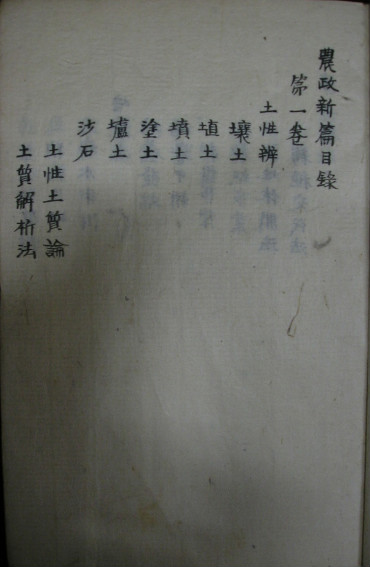 農政新篇目錄
第一卷
土性辨
壤土
埴土
墳土
塗土
壚土
沙石
土性土質論
土質解析法